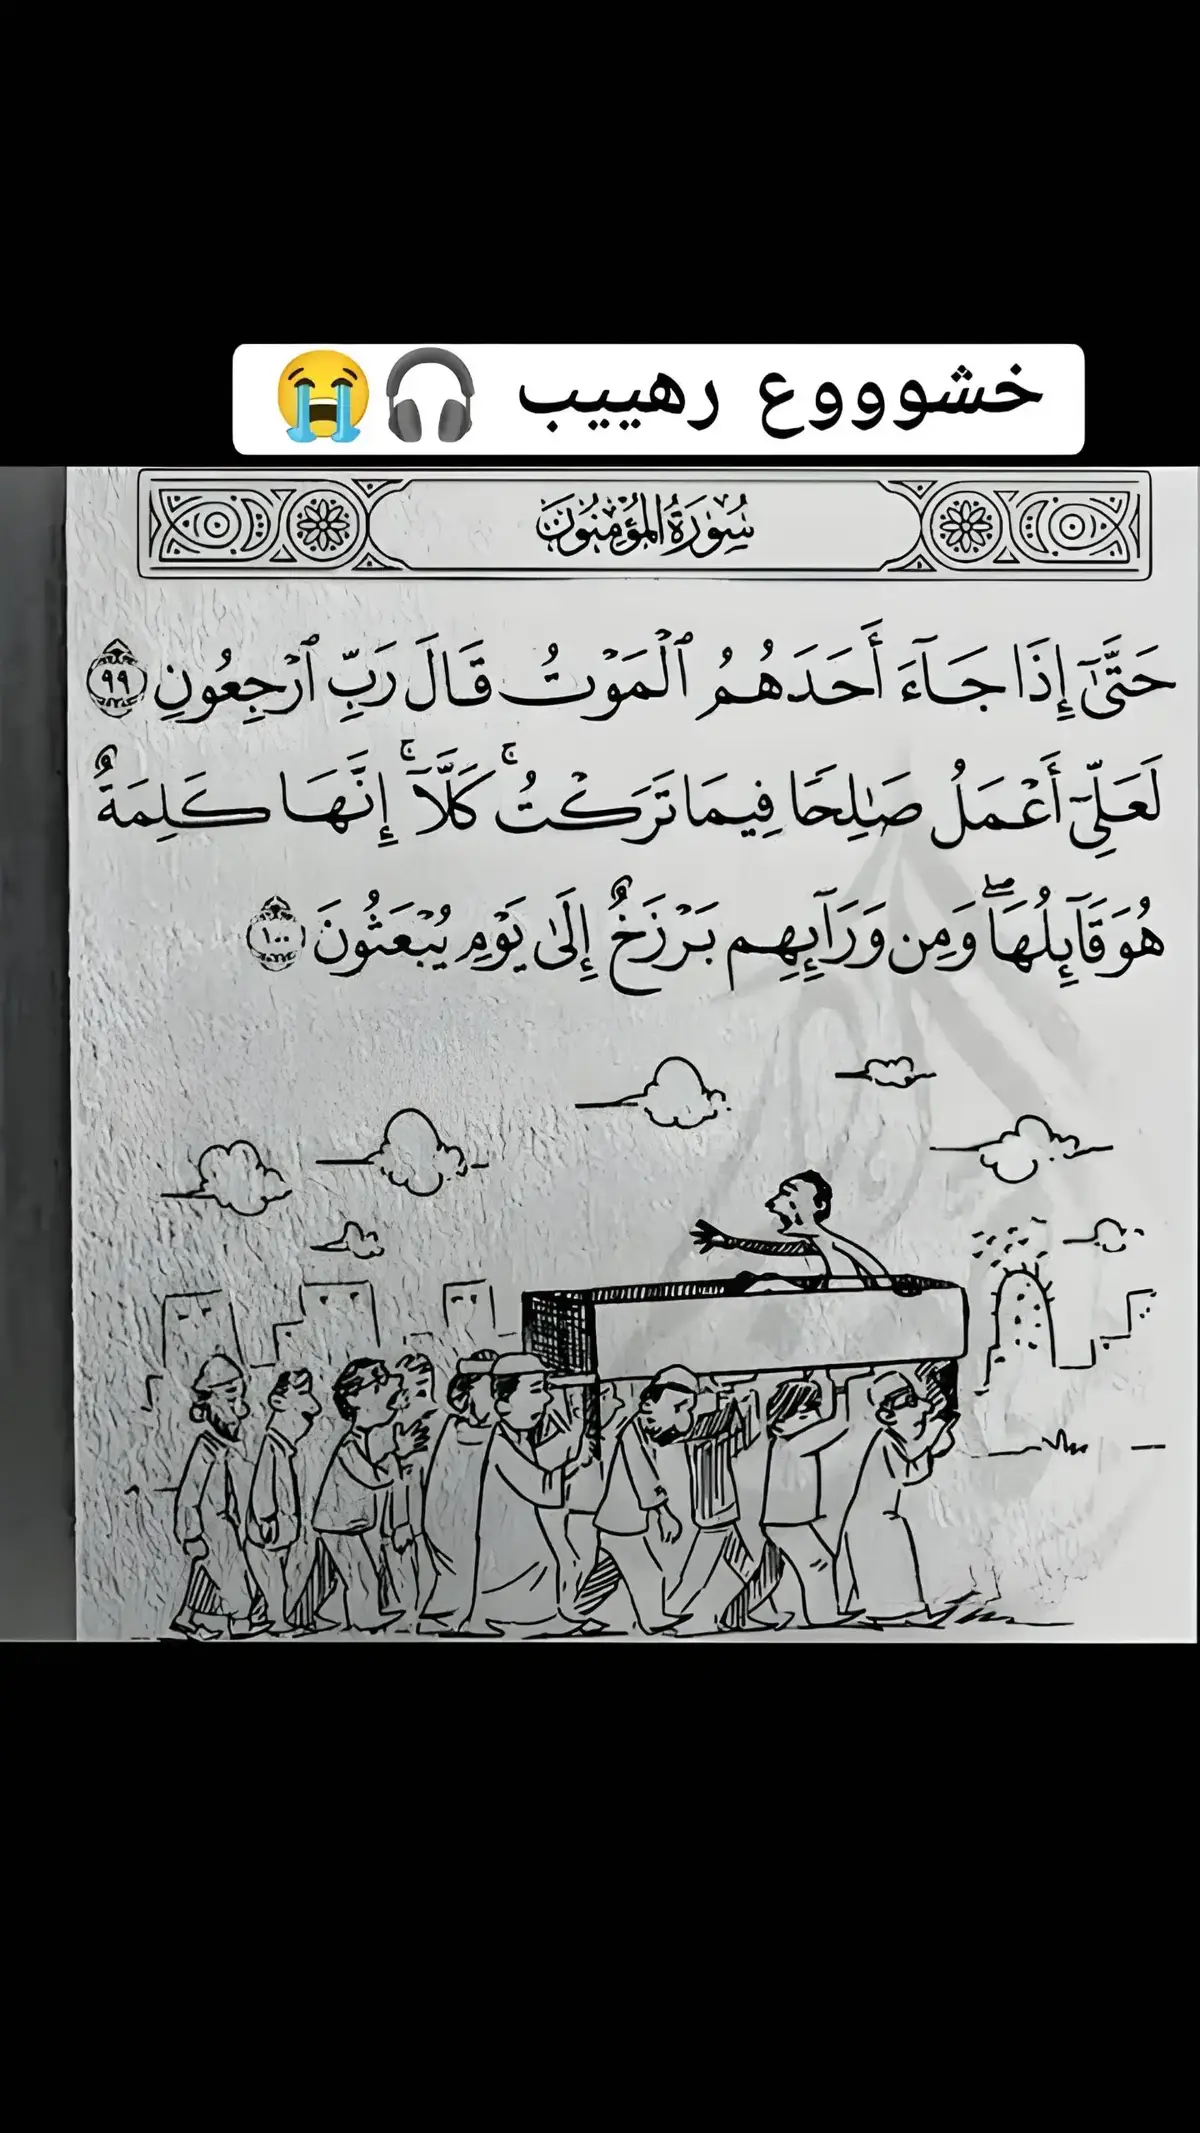 خشوووع رهييب 🎧😭
سُورَةُ المُؤْمِنُونَ
حَتَّىٰٓ إِذَا جَآءَ أَحَدَهُمُ ٱلْمَوْتُ قَالَ رَبِّ ٱرْجِعُونِ ٩٩
لَعَلِّىٓ أَعْمَلُ صَٰلِحًا فِيمَا تَرَكْتُ ۚ كَلَّآ ۚ إِنَّهَا كَلِمَةٌ
هُوَ قَآئِلُهَا ۖ وَمِن وَرَآئِهِم بَرْزَخٌ إِلَىٰ يَوْمِ يُبْعَثُونَ ١٠٠